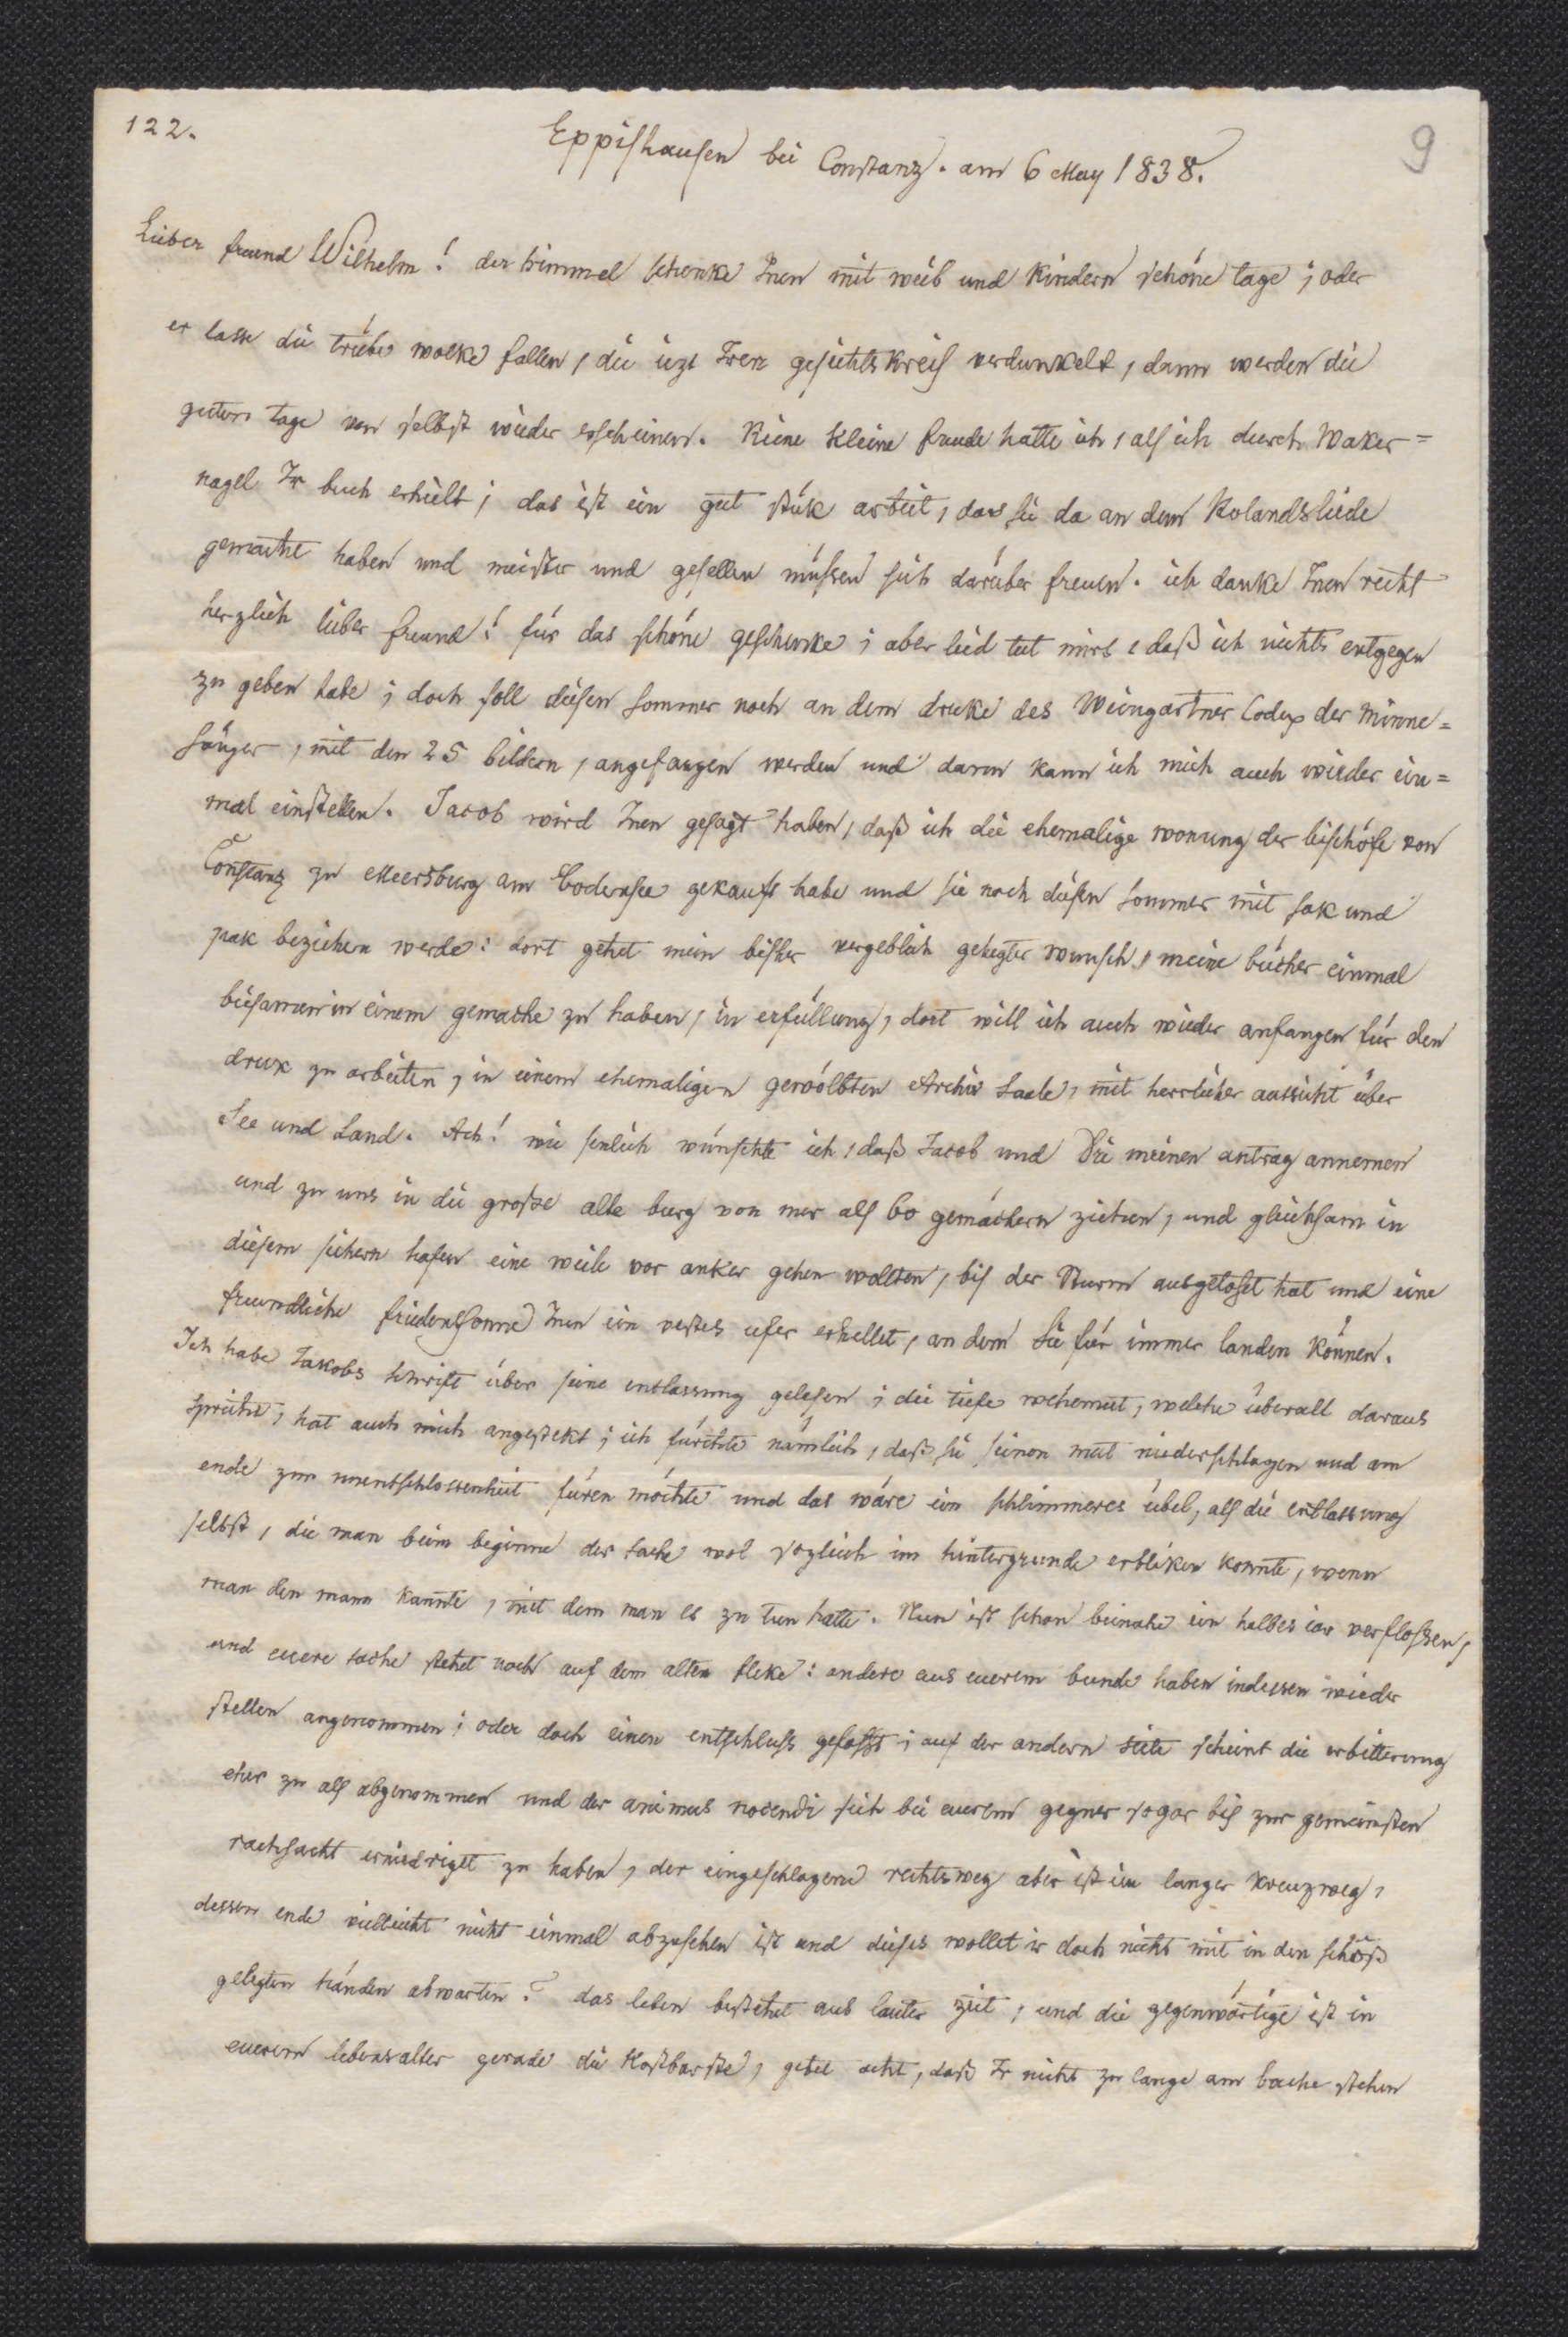 122.
9
Eppishausen bei Constanz. am 6 May 1838.
Lieber freund Wilhelm! der himmel schenke Inen mit weib und kindern schöne tage; oder
er lasse die trübe wolke fallen, die izt Iren gesichtskreis verdunkelt, dann werden die
guten tage von selbst wieder erscheinen. Keine kleine freude hatte ich, als ich durch Waker=
nagel Ir buch erhielt; das ist ein gut stük arbeit, das sie da an dem Rolandsliede
gemacht haben und meister und gesellen müssen sich darüber freuen. ich danke Inen recht
herzlich lieber freund! für das schöne geschenke; aber leid tut mirs, daß ich nichts entgegen
zu geben habe; doch soll diesen sommer noch an dem druke des Weingartner Codex der Minne=
sänger, mit den 25 bildern, angefangen werden und dann kann ich mich auch wieder ein=
mal einstellen. Jacob wird Inen gesagt haben, daß ich die ehemalige wonung der bischöfe von
Constanz zu Meersburg am Bodensee gekauft habe und sie noch diesen sommer mit sak und
pak beziehen werde: dort gehet mein bisher vergeblich gehegter wunsch, meine bücher einmal
beisamen in einem gemache zu haben, in erfüllung, dort will ich auch wieder anfangen für den
druk zu arbeiten, in einem ehemaligen gewölbten Archiv Saale, mit herrlicher aussicht über
See und Land. Ach! wie senlich wünschte ich, daß Jacob und Sie meinen antrag annemen
und zu uns in die große alte burg von mer als 60 gemächern ziehen, und gleichsam in
diesem sichern hafen eine weile vor anker gehen wollten, bis der Sturm ausgetoset hat und eine
freundliche friedenssonne Inen ein vestes ufer erhellet, an dem Sie für immer landen können.
Ich habe Jakobs schrift über seine entlassung gelesen; die tiefe wehemut, welche überall daraus
spricht, hat auch mich angestekt; ich fürchte nämlich, daß sie seinen mut niederschlagen und am
ende zur unentschlossenheit füren möchte und das wäre ein schlimmeres übel, als die entlassung
selbst, die man beim beginne der sache wol sogleich im hintergrunde erbliken konnte, wenn
man den mann kannte, mit dem man es zu tun hatte. Nun ist schon beinahe ein halbes iar verflossen,
und euere sache stehet noch auf dem alten fleke: andere aus euerem bunde haben indessen wieder
stellen angenommen; oder doch einen entschluss gefasst; auf der andern seite scheint die erbitterung
eher zu als abgenommen und der animus nocendi sich bei euerem gegner sogar bis zur gemeinsten
rachsucht erniedriget zu haben, der eingeschlagene rechtsweg aber ist ein langer kreuzweg,
dessen ende vielleicht nicht einmal abzusehen ist und dieses wollet ir doch nicht mit in den schoß
gelegten händen abwarten? das leben bestehet aus lauter zeit, und die gegenwärtige ist in
euerem lebensalter gerade die kostbarste, gebet acht, daß Ir nicht zu lange am bache stehen